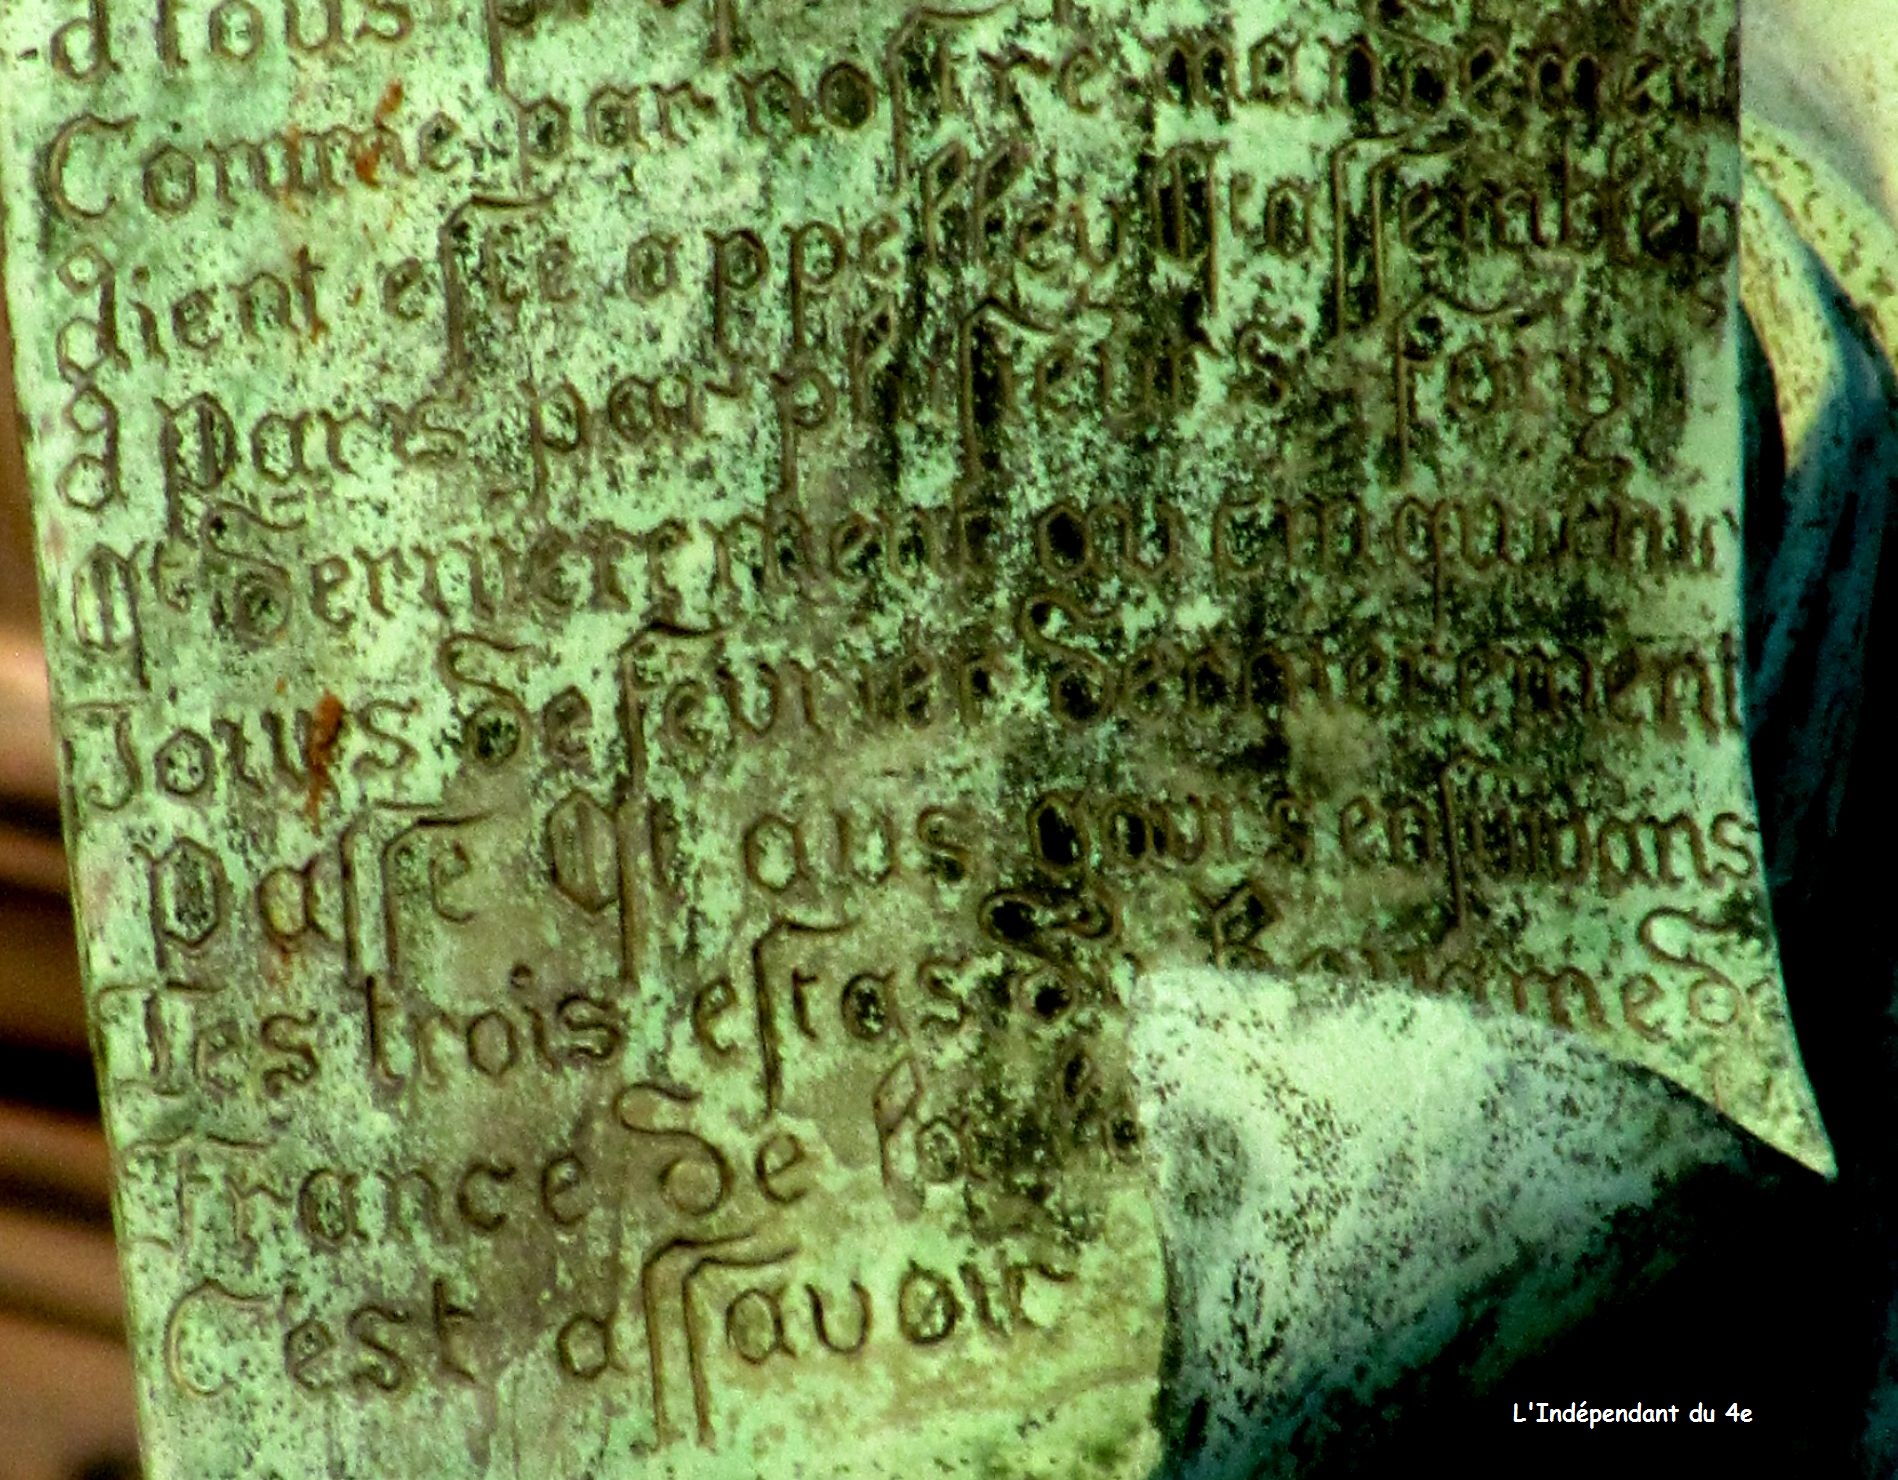 a tous
Comme par nostre mandement
aient este appellez & assemblez
a paris par plusieurs foiz
& dernierement au
Jours de fevrier dernierement
Passe & aus gours ensuivans
Les trois estas Royaume de
France de la
C'est assavoir
L'Indépendant du 4e